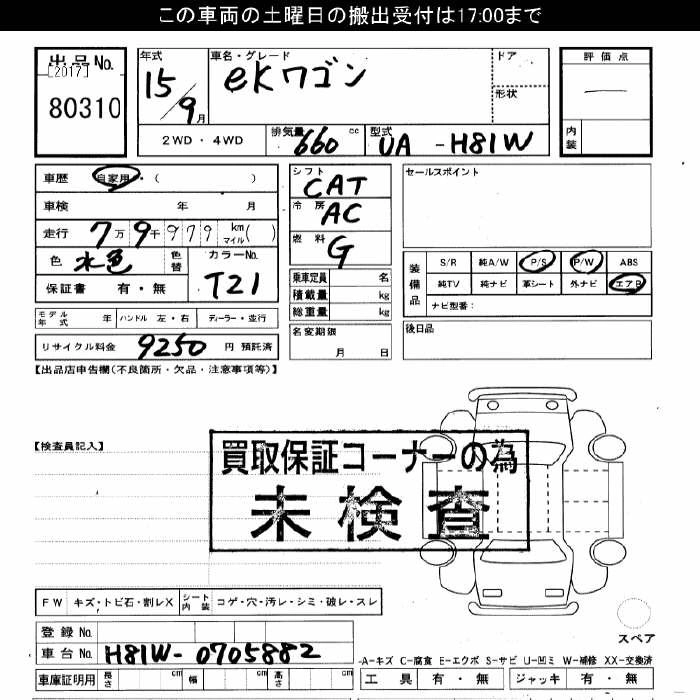 この車両の土曜日の搬出受付は17:00まで
出品No.
[2017]
80310
年式
15/9月
車名・グレード
eKワゴン
ドア
形状
評価点
内装
2WD・4WD
排気量 660 cc
型式 UA-H81W
車歴 自家用・( )
車検 年 月
走行 7万9千979 km マイル( )
色 水色 色替
カラーNo. T21
保証書 有・無
シフト CAT
冷房 AC
燃料 G
乗車定員 名
積載量 kg
総重量 kg
名変期限
月 日
セールスポイント
装備品
S/R 純A/W P/S P/W ABS
純TV 純ナビ 革シート 外ナビ エアB
ナビ型番:
後日品
モデル年式 年 ハンドル 左・右 ディーラー・並行
リサイクル料金 9250 円 預託済
【出品店申告欄(不良箇所・欠品・注意事項等)】
【検査員記入】
買取保証コーナーの為
未検査
FW キズ・トビ石・割レX シート内装 コゲ・穴・汚レ・シミ・破レ・スレ
スペア
登録No.
車台No. H81W-0705882
車庫証明用 長さ cm 幅 cm 高さ cm
-A-キズ C-腐食 E-エクボ S-サビ U-凹ミ W-補修 XX-交換済
工具 有・無 ジャッキ 有・無